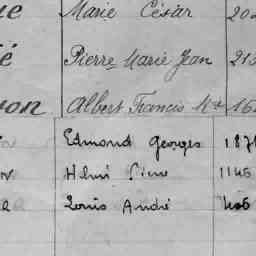 Marie César 20
é Pierre Marie Jean 213
on Albert Francis M 16
Edmond Georges 187
Henri 1145
Louis André